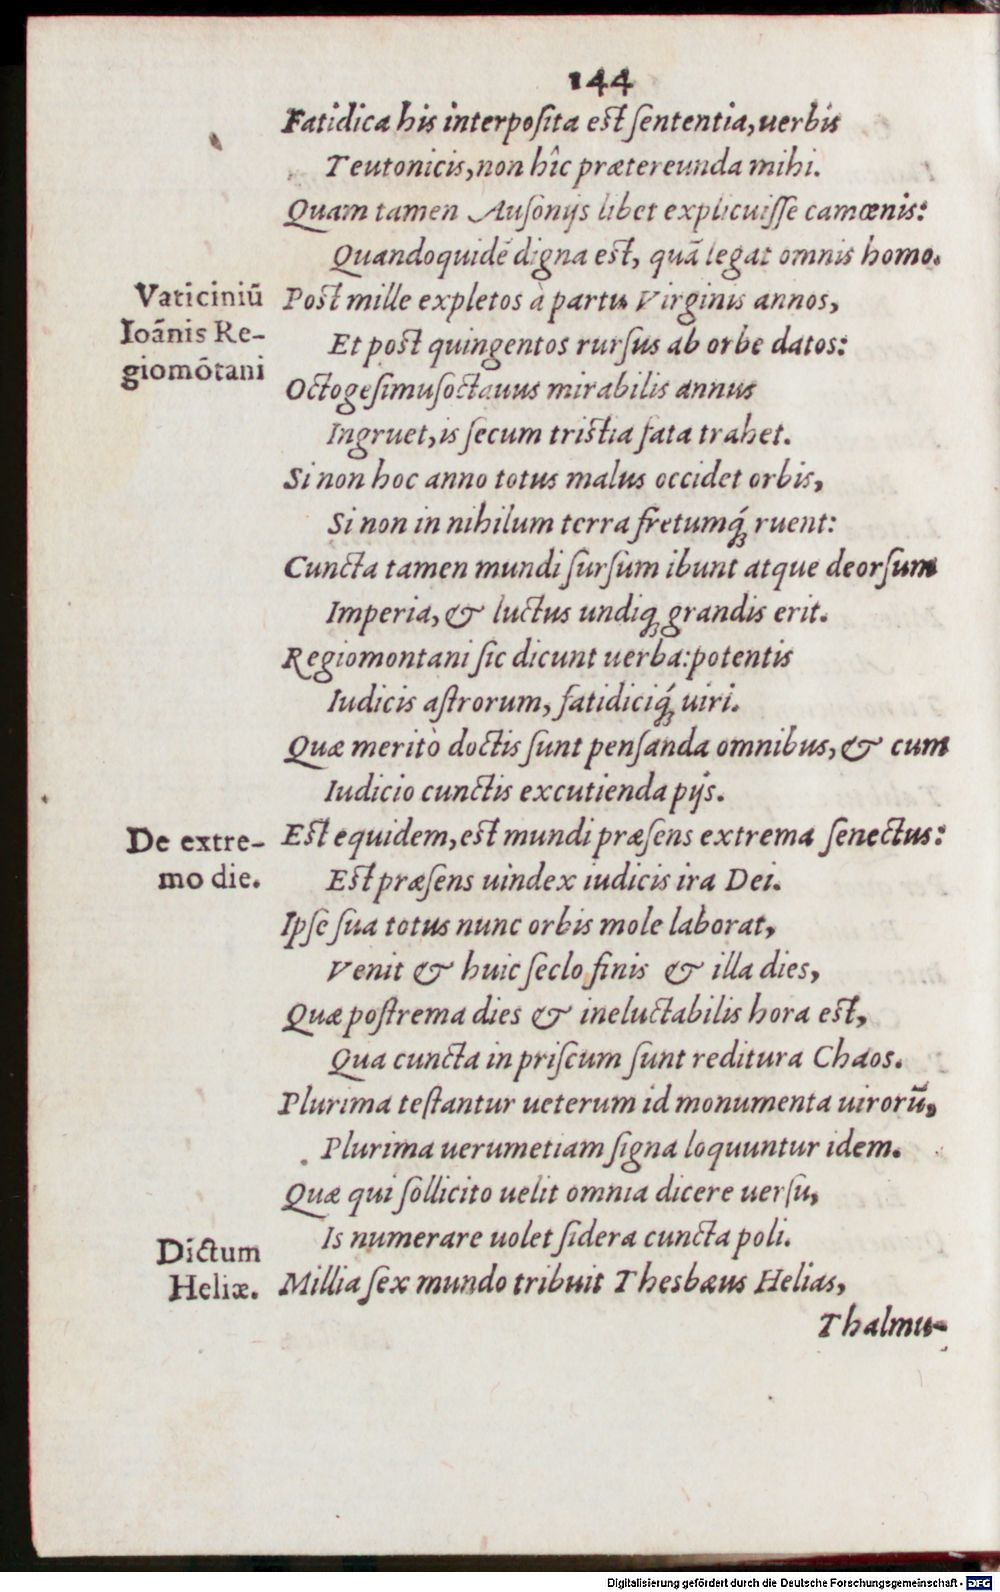 144
Fatidica his interpoſita eſt ſententia, uerbis
Teutonicis, non hîc prætereunda mihi.
Quam tamen Auſonijs libet explicuiſſe camœnis:
Quandoquidē digna eſt, quā legat omnis homo.
Vaticiniū
Ioānis Re-
giomōtani
Poſt mille expletos à partu Virginis annos,
Et poſt quingentos rurſus ab orbe datos:
Octogeſimuſoctauus mirabilis annus
Ingruet, is ſecum triſtia fata trahet.
Si non hoc anno totus malus occidet orbis,
Si non in nihilum terra fretumq́; ruent:
Cuncta tamen mundi ſurſum ibunt atque deorſum
Imperia, & luctus undiq; grandis erit.
Regiomontani ſic dicunt uerba: potentis
Iudicis aſtrorum, fatidiciq́; uiri.
Quæ meritò doctis ſunt penſanda omnibus, & cum
Iudicio cunctis excutienda pijs.
De extre-
mo die.
Eſt equidem, eſt mundi præſens extrema ſenectus:
Eſt præſens uindex iudicis ira Dei.
Ipſe ſua totus nunc orbis mole laborat,
Venit & huic ſeclo finis & illa dies,
Quæ poſtrema dies & ineluctabilis hora eſt,
Qua cuncta in priſcum ſunt reditura Chaos.
Plurima teſtantur ueterum id monumenta uirorū,
Plurima uerumetiam ſigna loquuntur idem.
Quæ qui ſollicito uelit omnia dicere uerſu,
Is numerare uolet ſidera cuncta poli.
Dictum
Heliæ.
Millia ſex mundo tribuit Thesbæus Helias,
Thalmu-
Digitalisierung gefördert durch die Deutsche Forschungsgemeinschaft - DFG